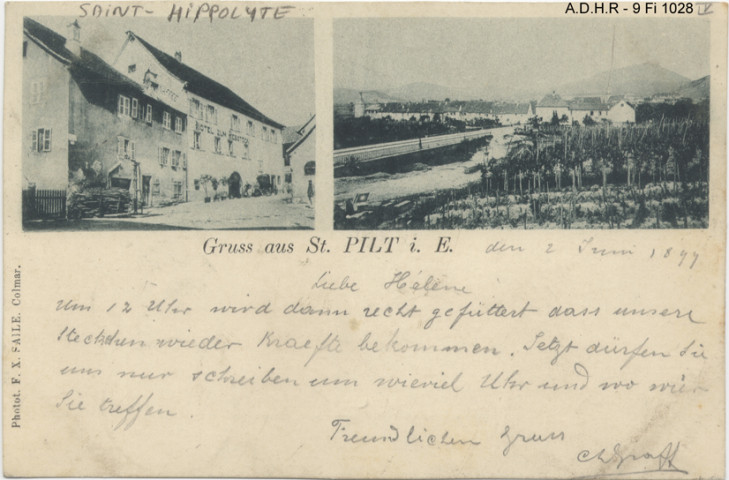 SAINT-HIPPOLYTE
A.D.H.R - 9 Fi 1028
Gruss aus St. PILT i. E.
den 2 Juni 1899
Liebe Helene
Um 12 Uhr wird dann recht gefüttert dass unsere
wieder Kraefte bekommen. Jetzt dürfen Sie
uns nur schreiben um wieviel Uhr und wo wir
Sie treffen.
Freundlichen Gruss
Photot. F. X. SAILE, Colmar.